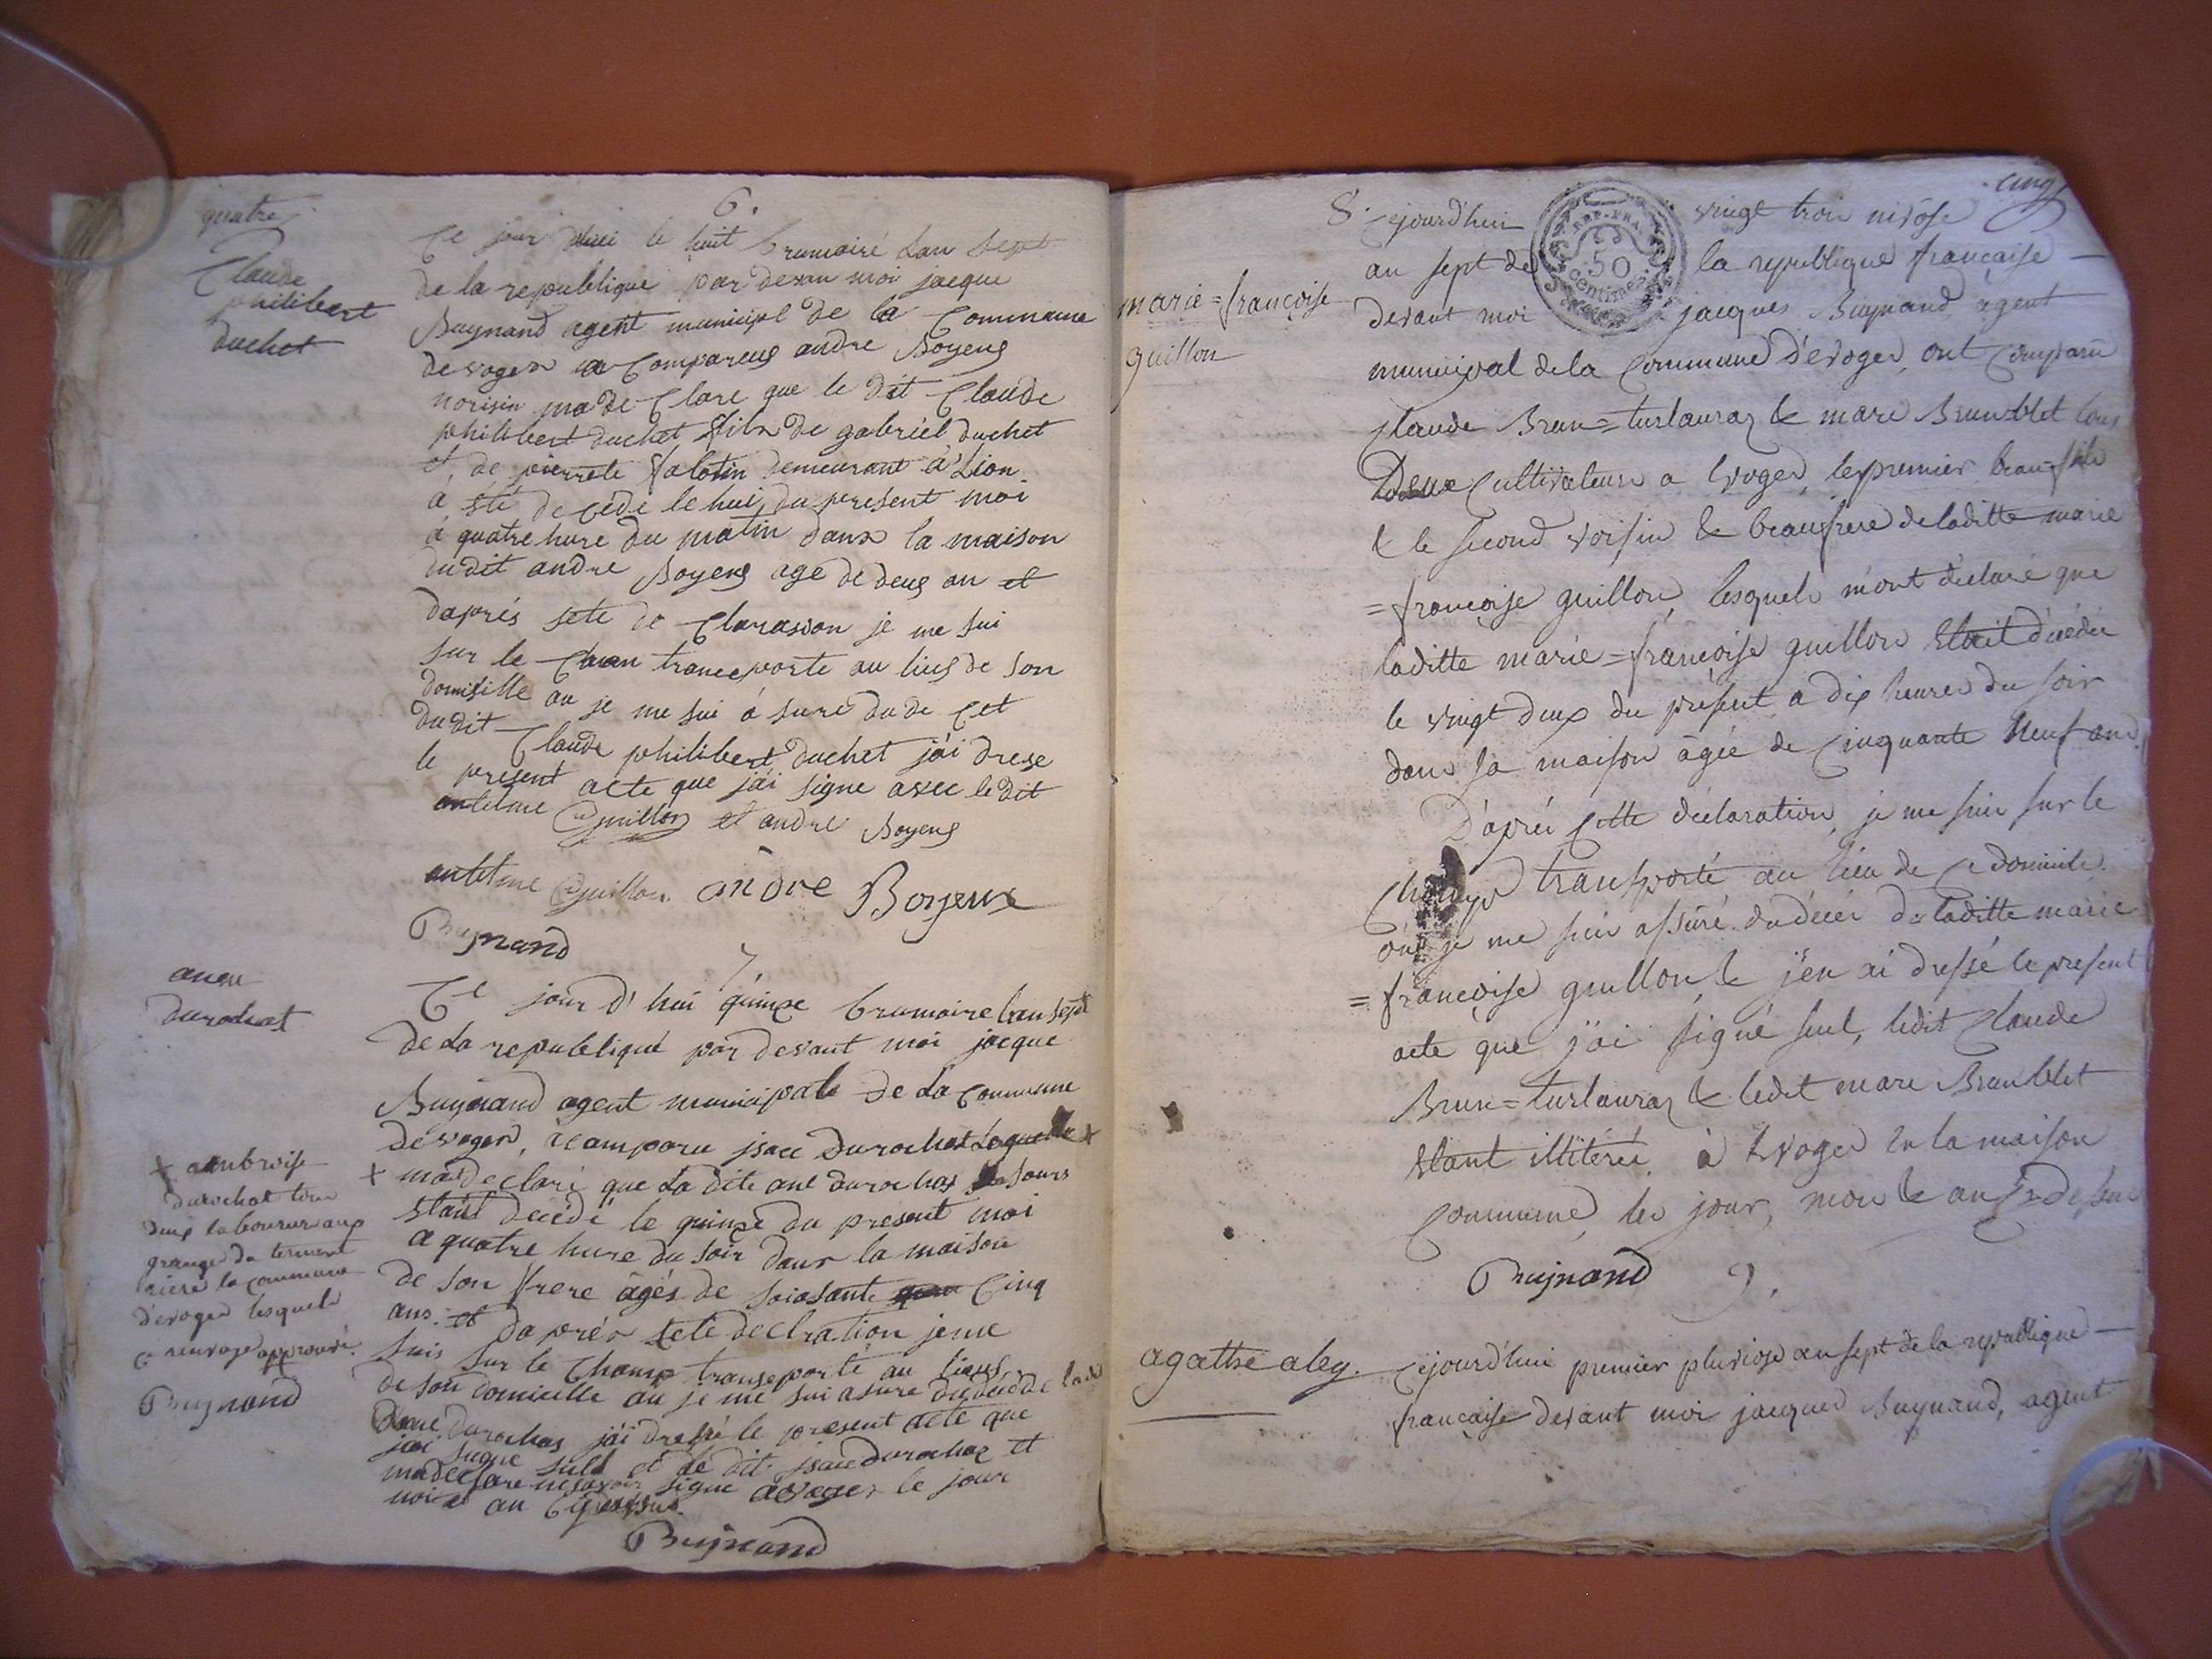 quatre
Claude
philibert
duchet
6.
Ce jour dhui le huit brumaire Lan sept
de la republique par devan moi jacque
Buynand agent municipl de la Commune
devoger a Compareus andre Boyeus
vorisin ma de Clare que le dit Claude
philibert duchet fils de gabriel duchet
et de pierrete falotin demeurant a Lion
a été decede le hui du present moi
a quatre hure du matin dans la maison
dudit andre Boyeus age de deus an et
daprés sete de Clarasion je me sui
sur le Chan transporte au lieus de son
domisille ou je me sui a sure du de Cet
dudit Claude philibert duchet jai drese
le present acte que jai signe avec le dit
antelme Guillon et andre Boyeus
antelme Guillon andre Boyeux
Buynand
7.
anne
durochat
Ce jour d'hui quinze brumaire lan sept
de La republique par devant moi jacque
Buynand agent municipale de La Commune
dévoger, a Comparu jsaac durochat Lequelle +
+ ma declaré que La dite ane durochas sa sours
etait decédé le quinze du present moi
a quatre hure du soir dans la maison
de son frere âgés de soiosante cinq
ans. et daprés sete declration jeme
suis sur le champ transporté au lieus
de son domicille ou je me sui asure du décd de lad
Anne durochas jái dressé le present acte que
jai signe sull et le dit jsaac durochas et
ma declare ne savoir signe a evoges le jour
moi et an Cydessus.
Bujnand
+ ambroise
durochat tous
deux laboureur aux
grange du terment
riere la commune
d'evoger lesquels
Ce renvoye approuvé.
Buynand
cinq
8. Cejourd'huy vingt trois nivôse
REP. FRA.
50
Centimes
an sept de la republique française —
devant moi jacques Buynand agent
municipal de la Commune d'évoges, ont Comparu
marie=françoise
guillon
Claude Brun=turlauraz & marc Brun blet tous
Deux Cultivateurs a Evoges, le premier beau=fils
& le second voisin & beaufrere de laditte marie
=françoise guillon, lesquels m'ont déclaré que
laditte marie=françoise guillon Etait décédée
le vingt deux du présent a dix heures du soir
dans sa maison âgée de Cinquante Neuf ans.
D'après Cette déclaration, je me suis sur le
Champ transporté au lieu de Ce domicile
où je me suis assûré du décès de laditte marie
=françoise guillon & j'en ai dressé le present
acte que j'ai signé seul, ledit Claude
Brun=turlauraz & ledit marc Brun blet
Etant illitérés. à Evoges En la maison
Commune, les jour, mois & an Cy-dessus
Bujnand
9.
agathe aley.
Cejourd'hui premier pluviose an sept de la republique —
française devant moi jacques Buynand, agent